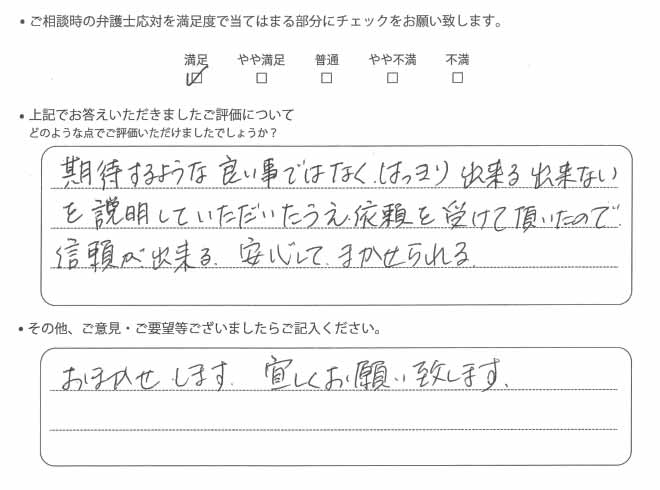 ・ご相談時の弁護士応対を満足度で当てはまる部分にチェックをお願い致します。
満足 やや満足 普通 やや不満 不満
☑ □ □ □ □
・上記でお答えいただきましたご評価について
どのような点でご評価いただけましたでしょうか？
期待するような良い事ではなく、はっきり出来る出来ない
を説明していただいたうえ、依頼を受けて頂いたので、
信頼が出来る。安心して、まかせられる。
・その他、ご意見・ご要望等ございましたらご記入ください。
おまかせします。宜しくお願い致します。